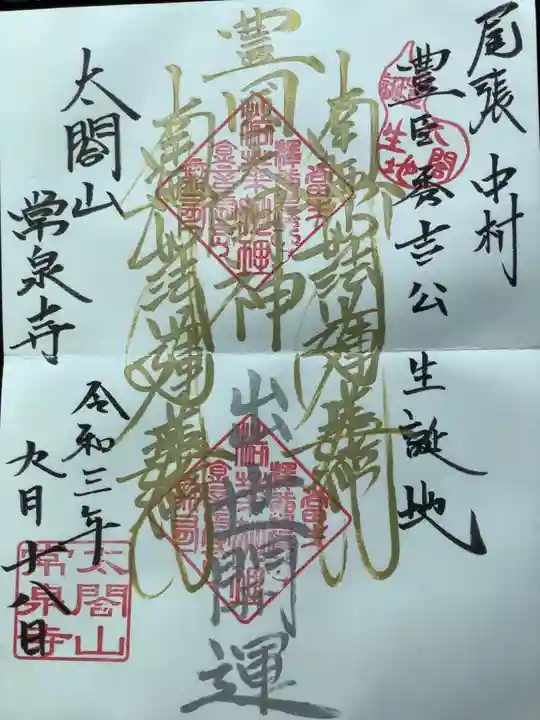 尾張 中村
豊臣秀吉公 生誕地
誕生地
太閤
南無妙法蓮華経
豊国大明神
出世開運
南無妙法蓮華経
太閤山
常泉寺
令和三年
九月十八日
太閤山
常泉寺